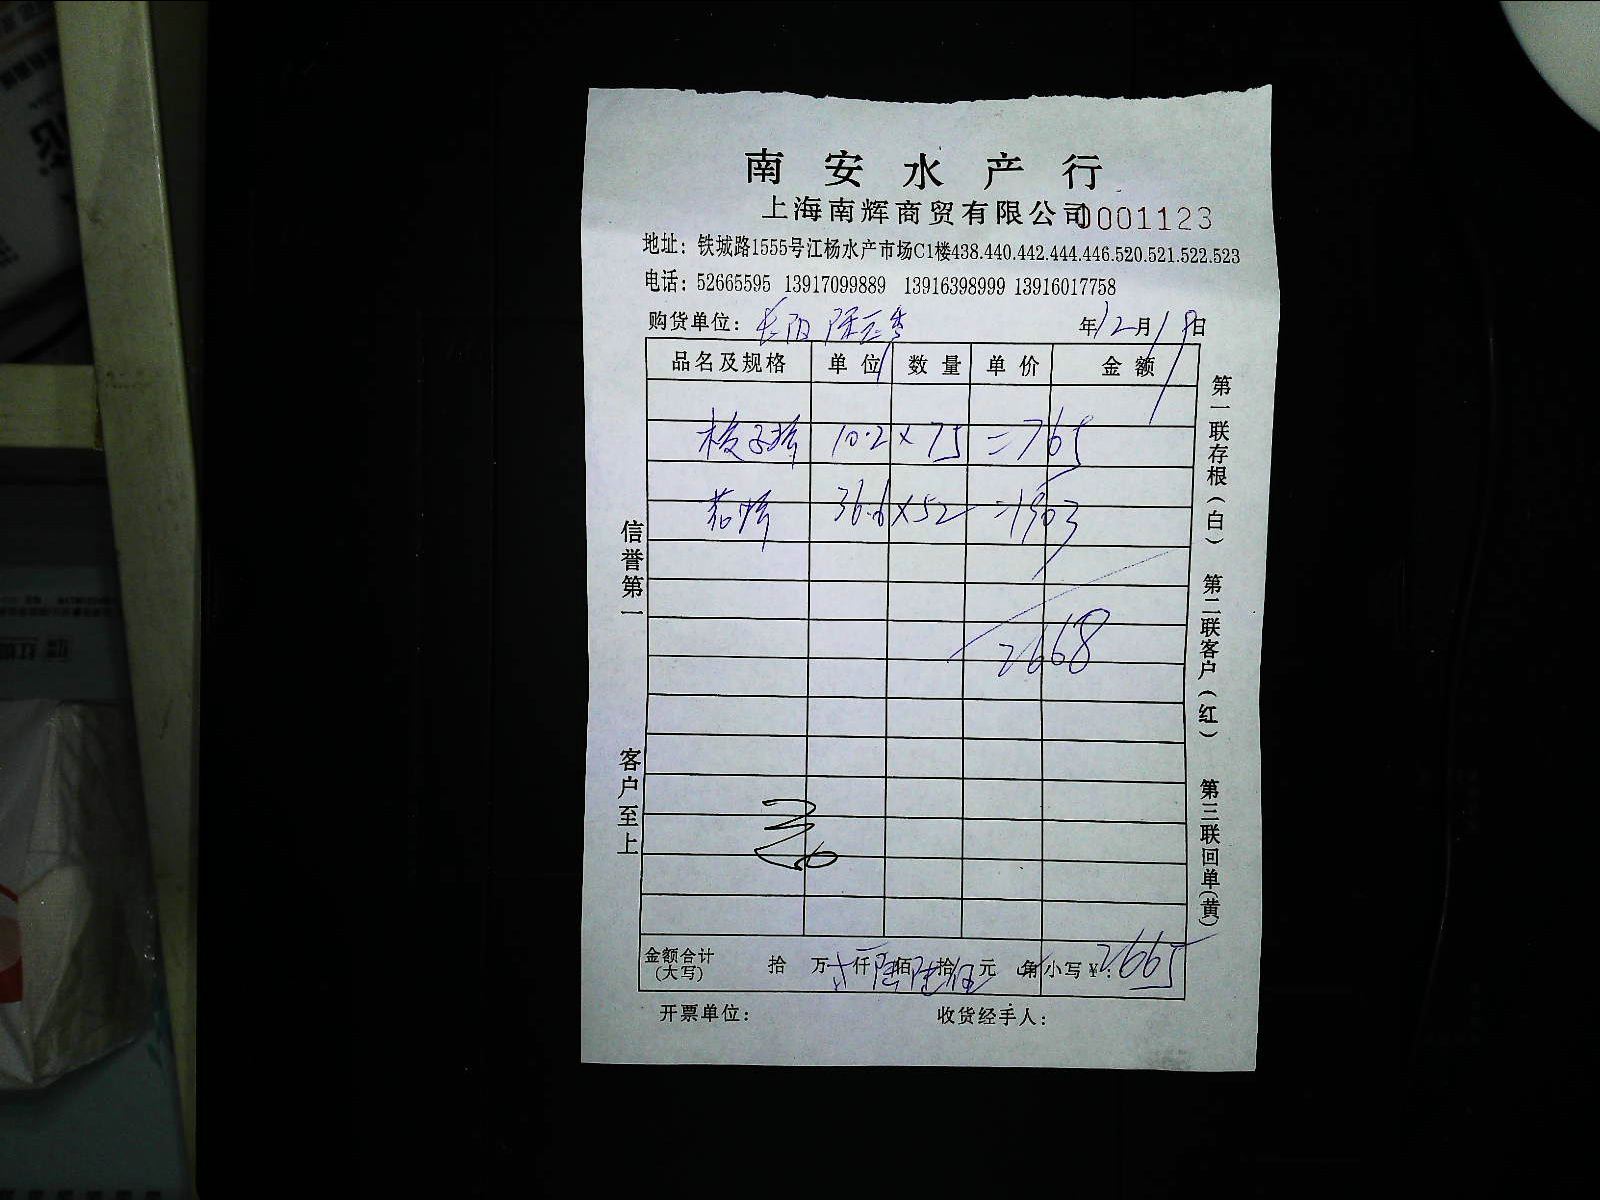 南安水产行
上海南辉商贸有限公司 0001123
地址：铁城路1555号江杨水产市场C1楼438.440.442.444.446.520.521.522.523
电话：52665595 13917099889 13916398999 13916017758
购货单位： 年12月19日
品名及规格 单位 数量 单价 金额
梭子蟹 10.2 × 75 = 765
36.6 × 52 = 1903
2668
金额合计(大写) 拾 万 仟陆佰陆拾伍元 角 小写￥：2665
开票单位： 收货经手人：
信誉第一 客户至上
第一联存根(白) 第二联客户(红) 第三联回单(黄)